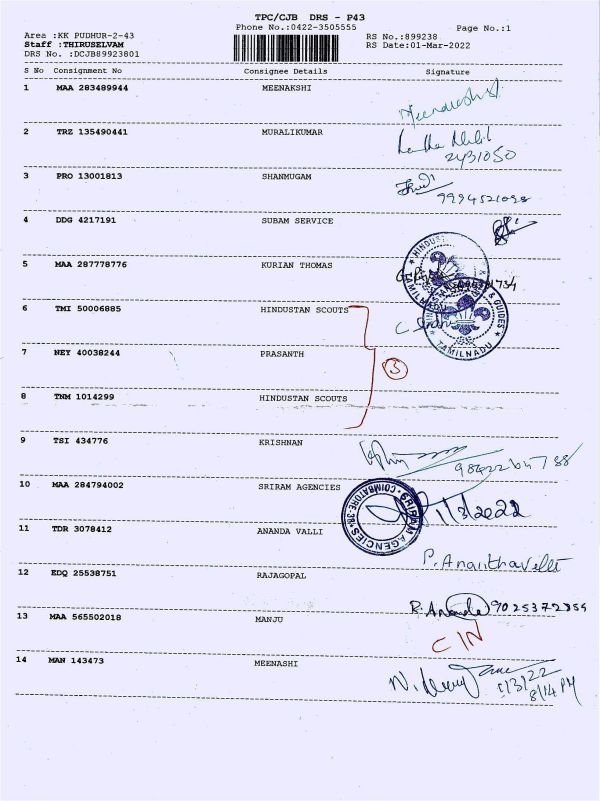 TPC/CJB DRS - P43
Phone No.:0422-3505555
Page No.:1
Area :KK PUDHUR-2-43
Staff :THIRUSELVAM
DRS No. :DCJB89923801
RS No.:899238
RS Date:01-Mar-2022
S No Consignment No Consignee Details Signature
1 MAA 283489944 MEENAKSHI
2 TRZ 135490441 MURALIKUMAR
2431050
3 PRO 13001813 SHANMUGAM
9994521098
4 DDG 4217191 SUBAM SERVICE
5 MAA 287778776 KURIAN THOMAS
6 TMI 50006885 HINDUSTAN SCOUTS
HINDUSTAN SCOUTS & GUIDES
TAMILNADU
7 NEY 40038244 PRASANTH
3
8 TNM 1014299 HINDUSTAN SCOUTS
9 TSI 434776 KRISHNAN
10 MAA 284794002 SRIRAM AGENCIES
SRIRAM AGENCIES COIMBATORE-38
1/3/2022
11 TDR 3078412 ANANDA VALLI
P. Ananthavalli
12 EDQ 25538751 RAJAGOPAL
R. Ananda 9025372855
13 MAA 565502018 MANJU
C IN
14 MAN 143473 MEENASHI
1/3/22
8/14 PM